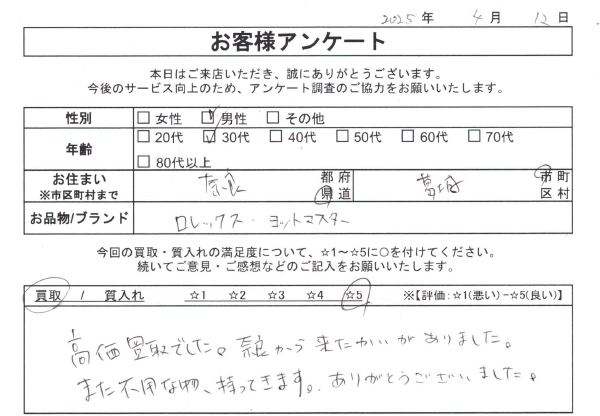 2025年 4月 12日
お客様アンケート
本日はご来店いただき、誠にありがとうございます。
今後のサービス向上のため、アンケート調査のご協力をお願いいたします。
性別 □ 女性 ☑ 男性 □ その他
年齢 □ 20代 ☑ 30代 □ 40代 □ 50代 □ 60代 □ 70代
□ 80代以上
お住まい 奈良 都府 葛城 市町
※市区町村まで 県道 区村
お品物/ブランド ロレックス・ヨットマスター
今回の買取・質入れの満足度について、☆1〜☆5に○を付けてください。
続いてご意見・ご感想などのご記入をお願いいたします。
買取 / 質入れ ☆1 ☆2 ☆3 ☆4 ☆5 ※【評価:☆1(悪い)−☆5(良い)】
高価買取でした。奈良から来たかいがありました。
また不用な物、持ってきます。ありがとうございました。